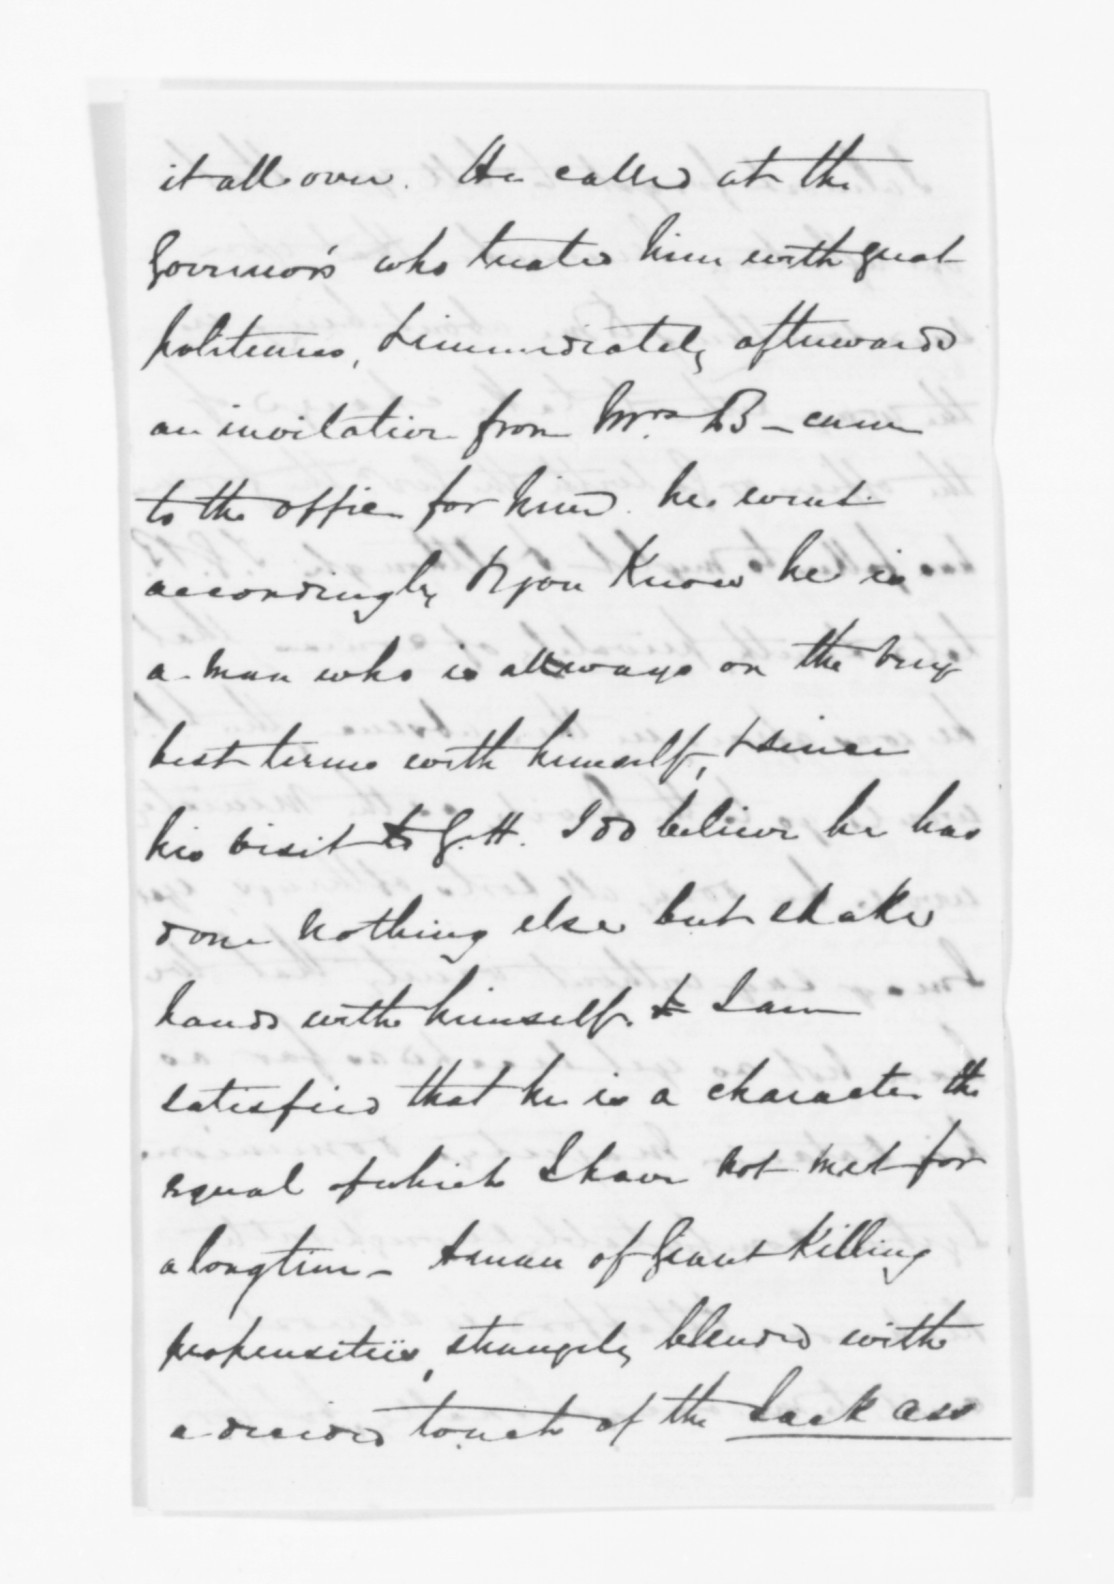 it all over. He called at the
Governor's who treated him with great
politeness, & immediately afterwards
an invitation from Mrs. B - came
to the office for him. he went
accordingly & you Know he is
a man who is allways on the very
best terms with himself, & since
his visit to G. H. I do believe he has
done nothing else but shake
hands with himself. & I am
satisfied that he is a character the
equal of which I have not met for
a long time - A man of Giant Killing
propensities, strangely blended with
a decided touch of the Jack ass